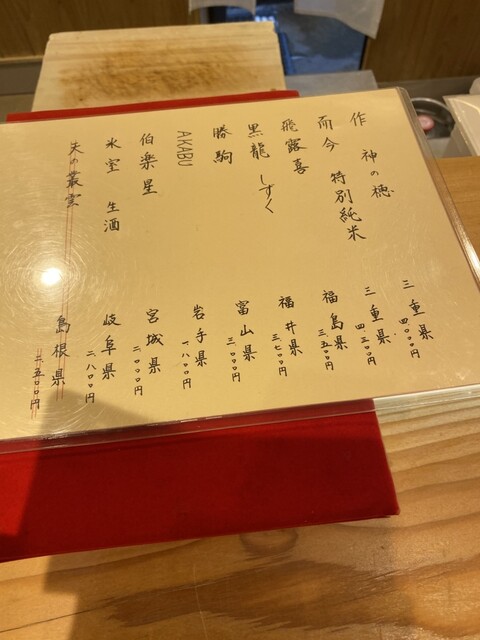 作 神の穂 三重県 四〇〇〇円
而今 特別純米 三重県 四三〇〇円
飛露喜 福島県 三五〇〇円
黒龍 しずく 福井県 三七〇〇円
勝駒 富山県 三〇〇〇円
AKABU 岩手県 一八〇〇円
伯楽星 宮城県 二〇〇〇円
氷室 生酒 岐阜県 二八〇〇円
天の叢雲 島根県 二五〇〇円